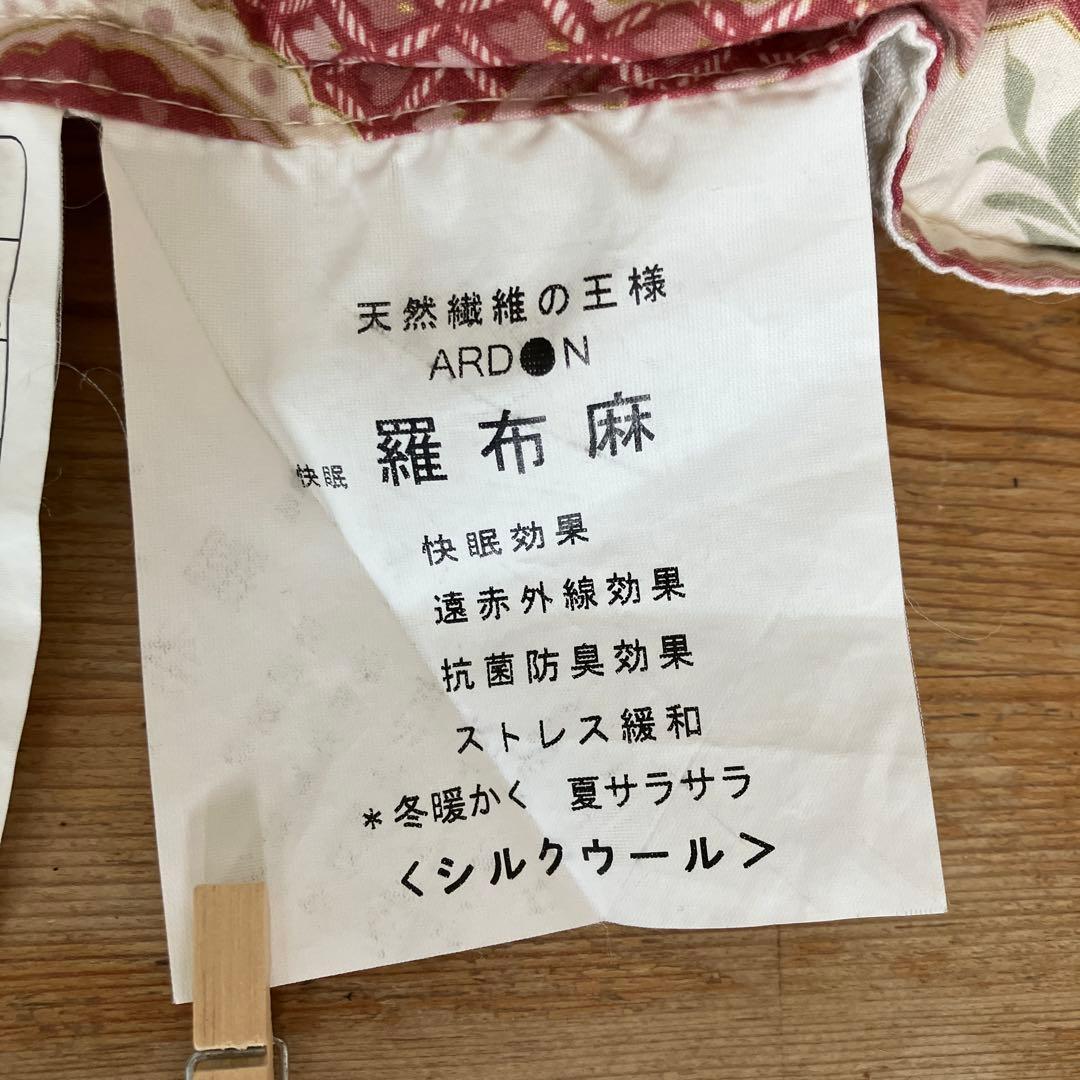 天然繊維の王様
ARD●N
快眠 羅布麻
快眠効果
遠赤外線効果
抗菌防臭効果
ストレス緩和
*冬暖かく 夏サラサラ
<シルクウール>